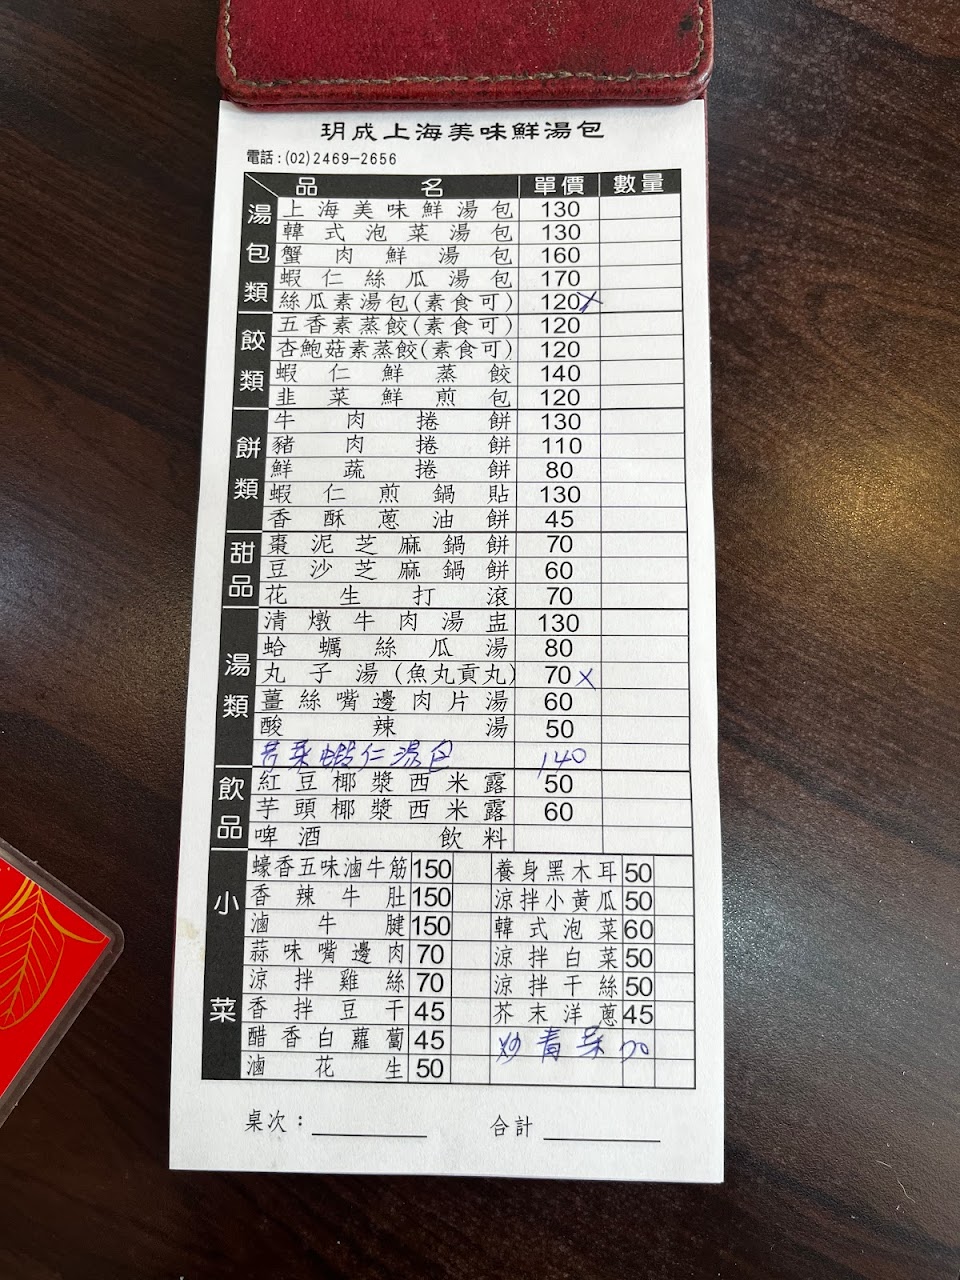 玥成上海美味鮮湯包
電話：(02)2469-2656
品名 單價 數量
湯包類
上海美味鮮湯包 130
韓式泡菜湯包 130
蟹肉鮮湯包 160
蝦仁絲瓜湯包 170
絲瓜素湯包(素食可) 120 X
餃類
五香素蒸餃(素食可) 120
杏鮑菇素蒸餃(素食可) 120
蝦仁鮮蒸餃 140
韭菜鮮煎包 120
餅類
牛肉捲餅 130
豬肉捲餅 110
鮮蔬捲餅 80
蝦仁煎鍋貼 130
香酥蔥油餅 45
甜品
棗泥芝麻鍋餅 70
豆沙芝麻鍋餅 60
花生打滾 70
湯類
清燉牛肉湯盅 130
蛤蠣絲瓜湯 80
丸子湯(魚丸貢丸) 70 X
薑絲嘴邊肉片湯 60
酸辣湯 50
菜蝦仁湯包 140
飲品
紅豆椰漿西米露 50
芋頭椰漿西米露 60
啤酒飲料
小菜
蠔香五味滷牛筋 150 養身黑木耳 50
香辣牛肚 150 涼拌小黃瓜 50
滷牛腱 150 韓式泡菜 60
蒜味嘴邊肉 70 涼拌白菜 50
涼拌雞絲 70 涼拌干絲 50
香拌豆干 45 芥末洋蔥 45
醋香白蘿蔔 45 炒青菜 70
滷花生 50
桌次： 合計